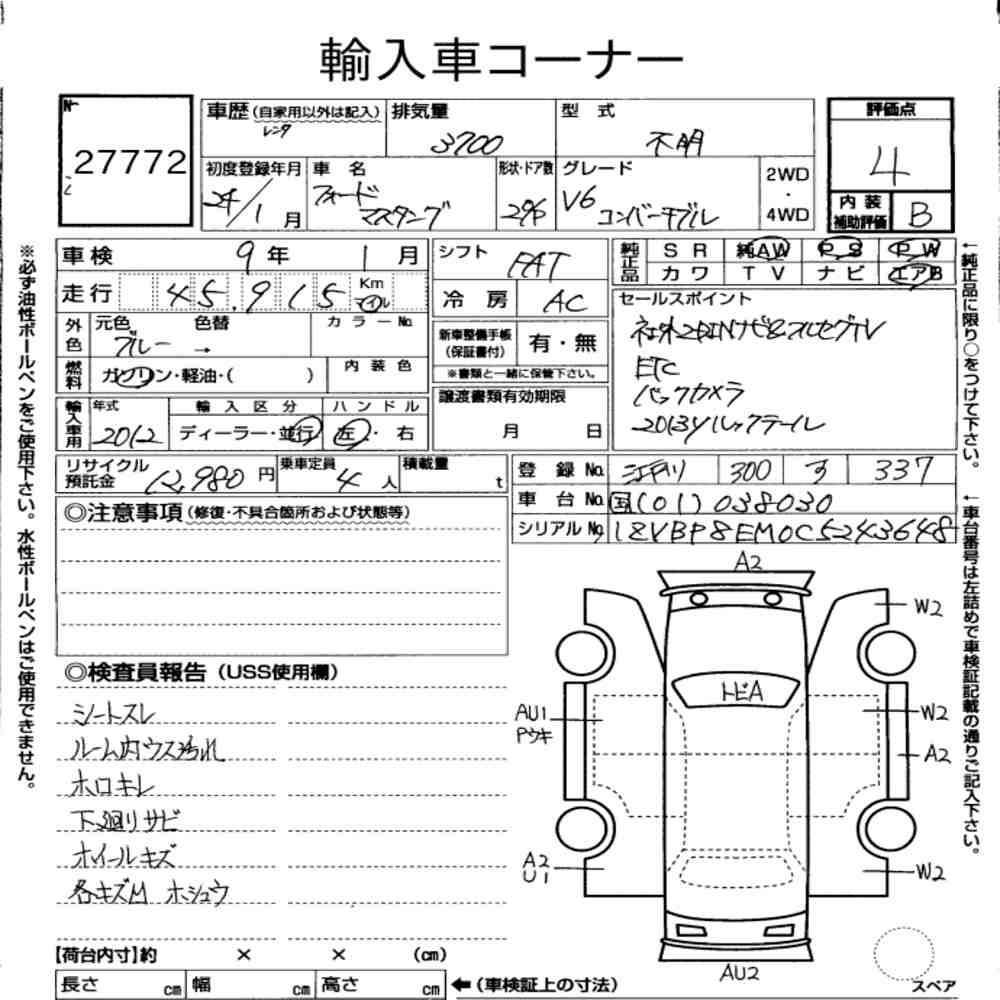 輸入車コーナー
№
27772
車歴(自家用以外は記入)
レンタ
排気量
3700
型 式
不明
評価点
4
内装補助評価
B
初度登録年月
24/1月
車 名
フォード
マスタング
形状・ドア数
グレード
V6
コンバーチブル
2WD
・
4WD
車検 9年 1月
シフト FAT
純正品
SR 純AW PS PW
カワ TV ナビ エアB
走行 45,915 Km マイル
冷房 AC
セールスポイント
社外2DINナビ&フルセグTV
ETC
バックカメラ
2013yルックテール
外色
元色 色替 カラーNo.
ブルー →
新車整備手帳
(保証書付)
有・無
※書類と一緒に保管下さい。
燃料
ガソリン・軽油・( )
内装色
譲渡書類有効期限
月 日
輸入車用
年式
2012
輸入区分
ディーラー・並行
ハンドル
左・右
リサイクル
預託金
12,980円
乗車定員
4人
積載量
t
登録No. 300 す 337
車台No. 国(01)038030
シリアルNo. 1ZVBP8EM0C5243648
◎注意事項(修復・不具合箇所および状態等)
◎検査員報告(USS使用欄)
シートスレ
ルーム内ウス汚れ
ホロキレ
下廻りサビ
ホイールキズ
各キズM ホシュウ
A2
W2
トビA
AU1
Pウキ
W2
A2
A2
U1
W2
AU2
スペア
【荷台内寸】約 × × (cm)
長さ cm 幅 cm 高さ cm
←(車検証上の寸法)
※必ず油性ボールペンをご使用下さい。水性ボールペンはご使用できません。
←純正品に限り○をつけて下さい。
←車台番号は左詰めで車検証記載の通りご記入下さい。